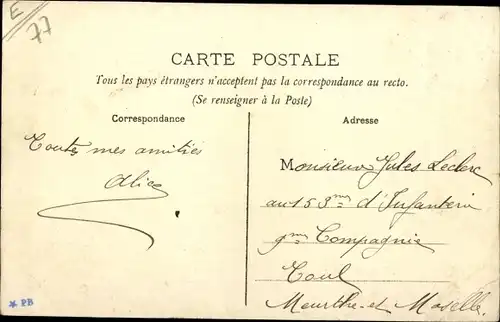 E
77
CARTE POSTALE
Tous les pays étrangers n'acceptent pas la correspondance au recto.
(Se renseigner à la Poste)
Correspondance
Toutes mes amitiés
Alice
Adresse
Monsieur Jules Leclerc
au 153me d'Infanterie
9me Compagnie
Toul
Meurthe-et Moselle.
* PB